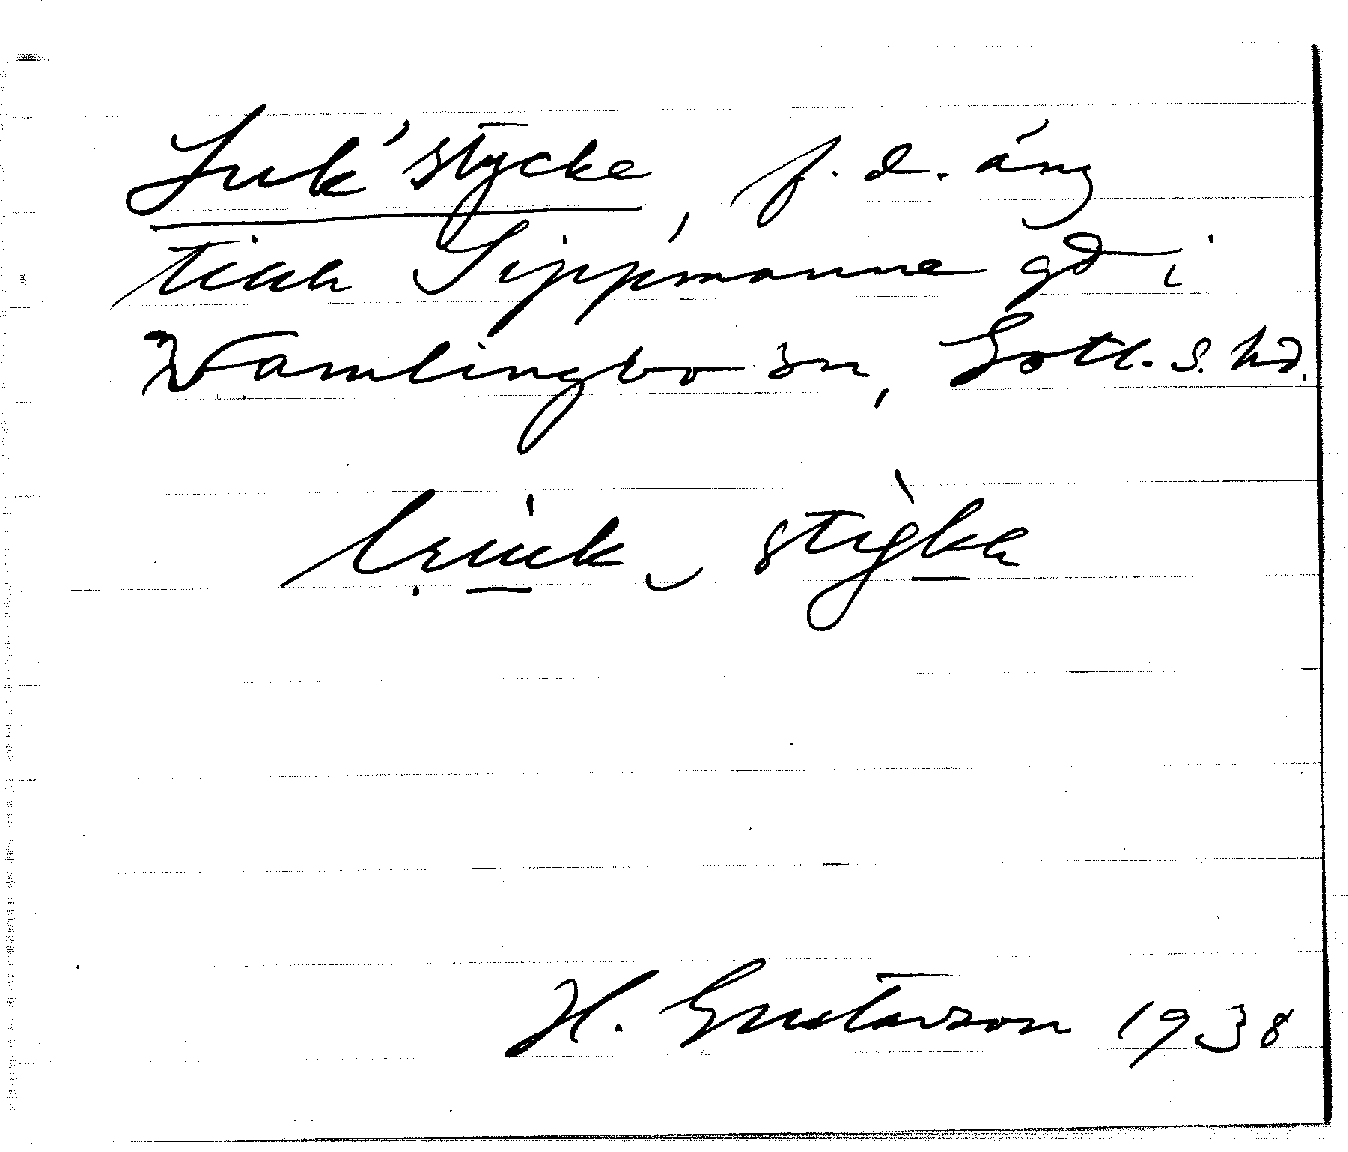 Luk'stycke, f. d. äng
till Sipp'manne gd i
Wamlingbo sn, Gotl. s. hd.
stỳka
H. Gustavson 1938